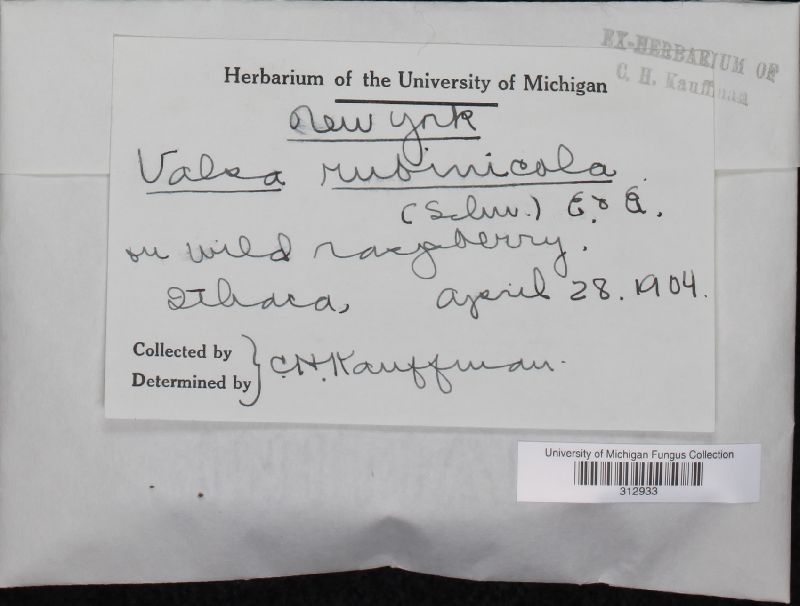 EX-HERBARIUM OF
C. H. Kauffman
Herbarium of the University of Michigan
New York
Valsa rubinicola.
(Schw.) E. & E.
on wild raspberry.
Ithaca, April 28. 1904.
Collected by
Determined by } C.H. Kauffman.
University of Michigan Fungus Collection
312933